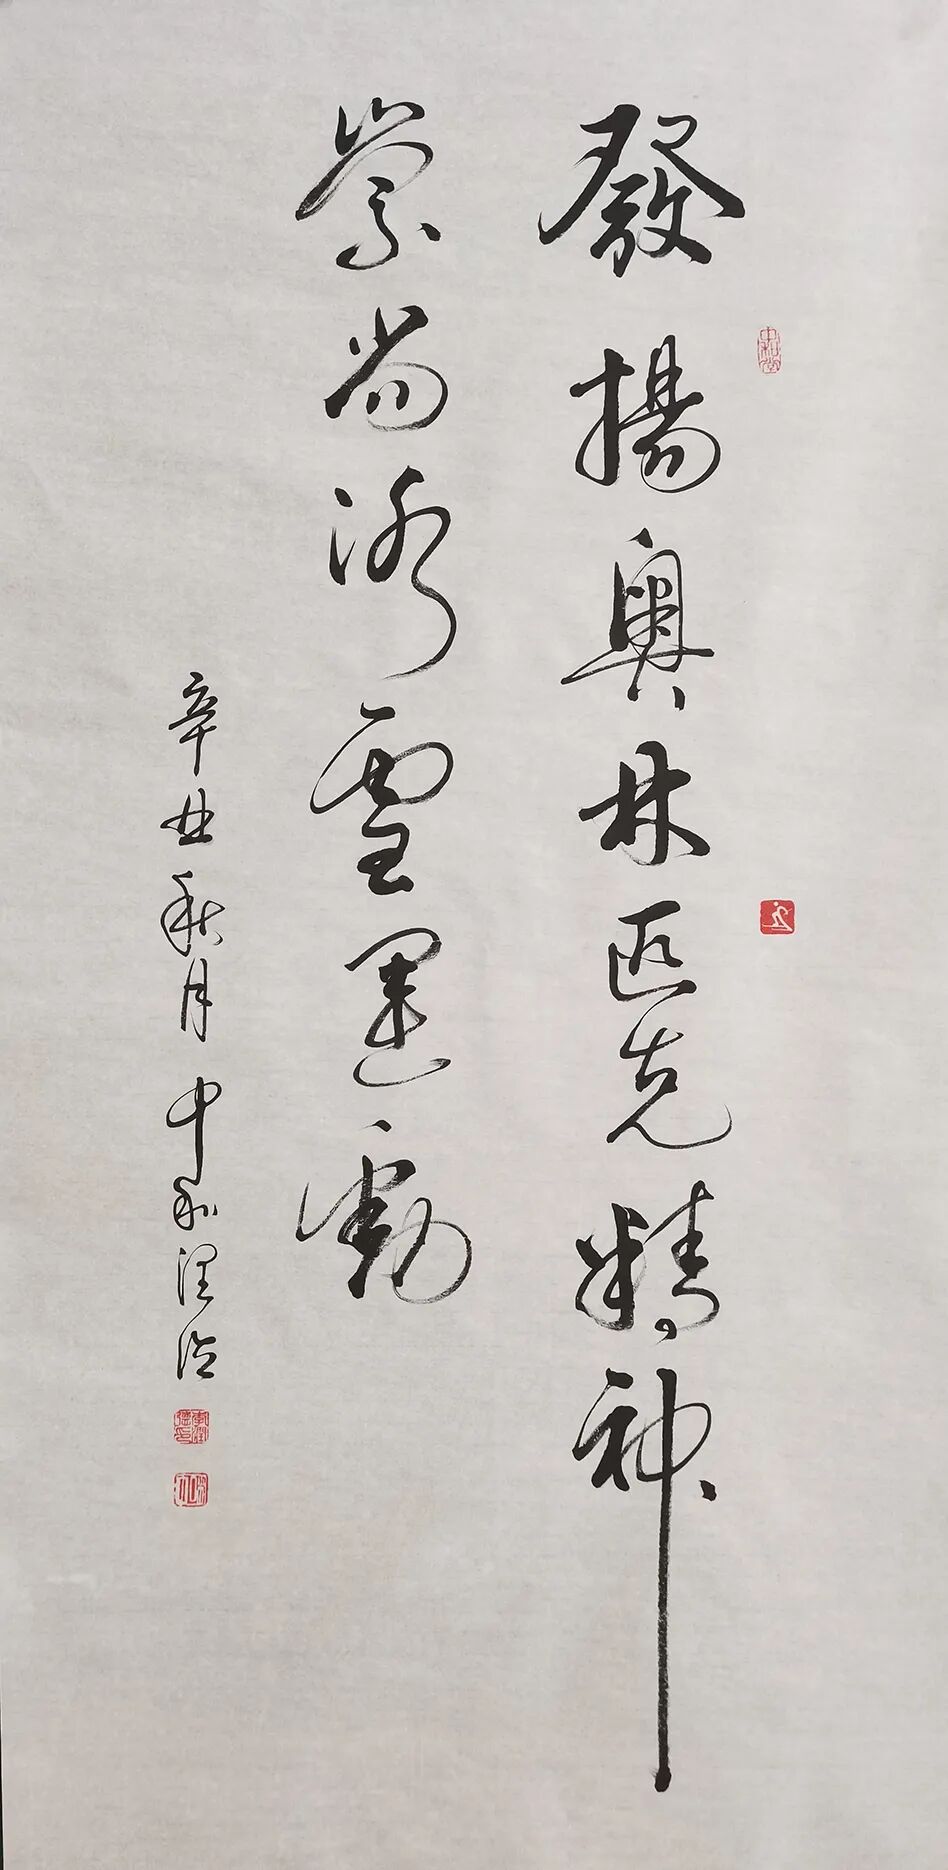 發揚奧林匹克精神
崇尚冰雪運動
辛丑秋月 中和潤德
中和堂